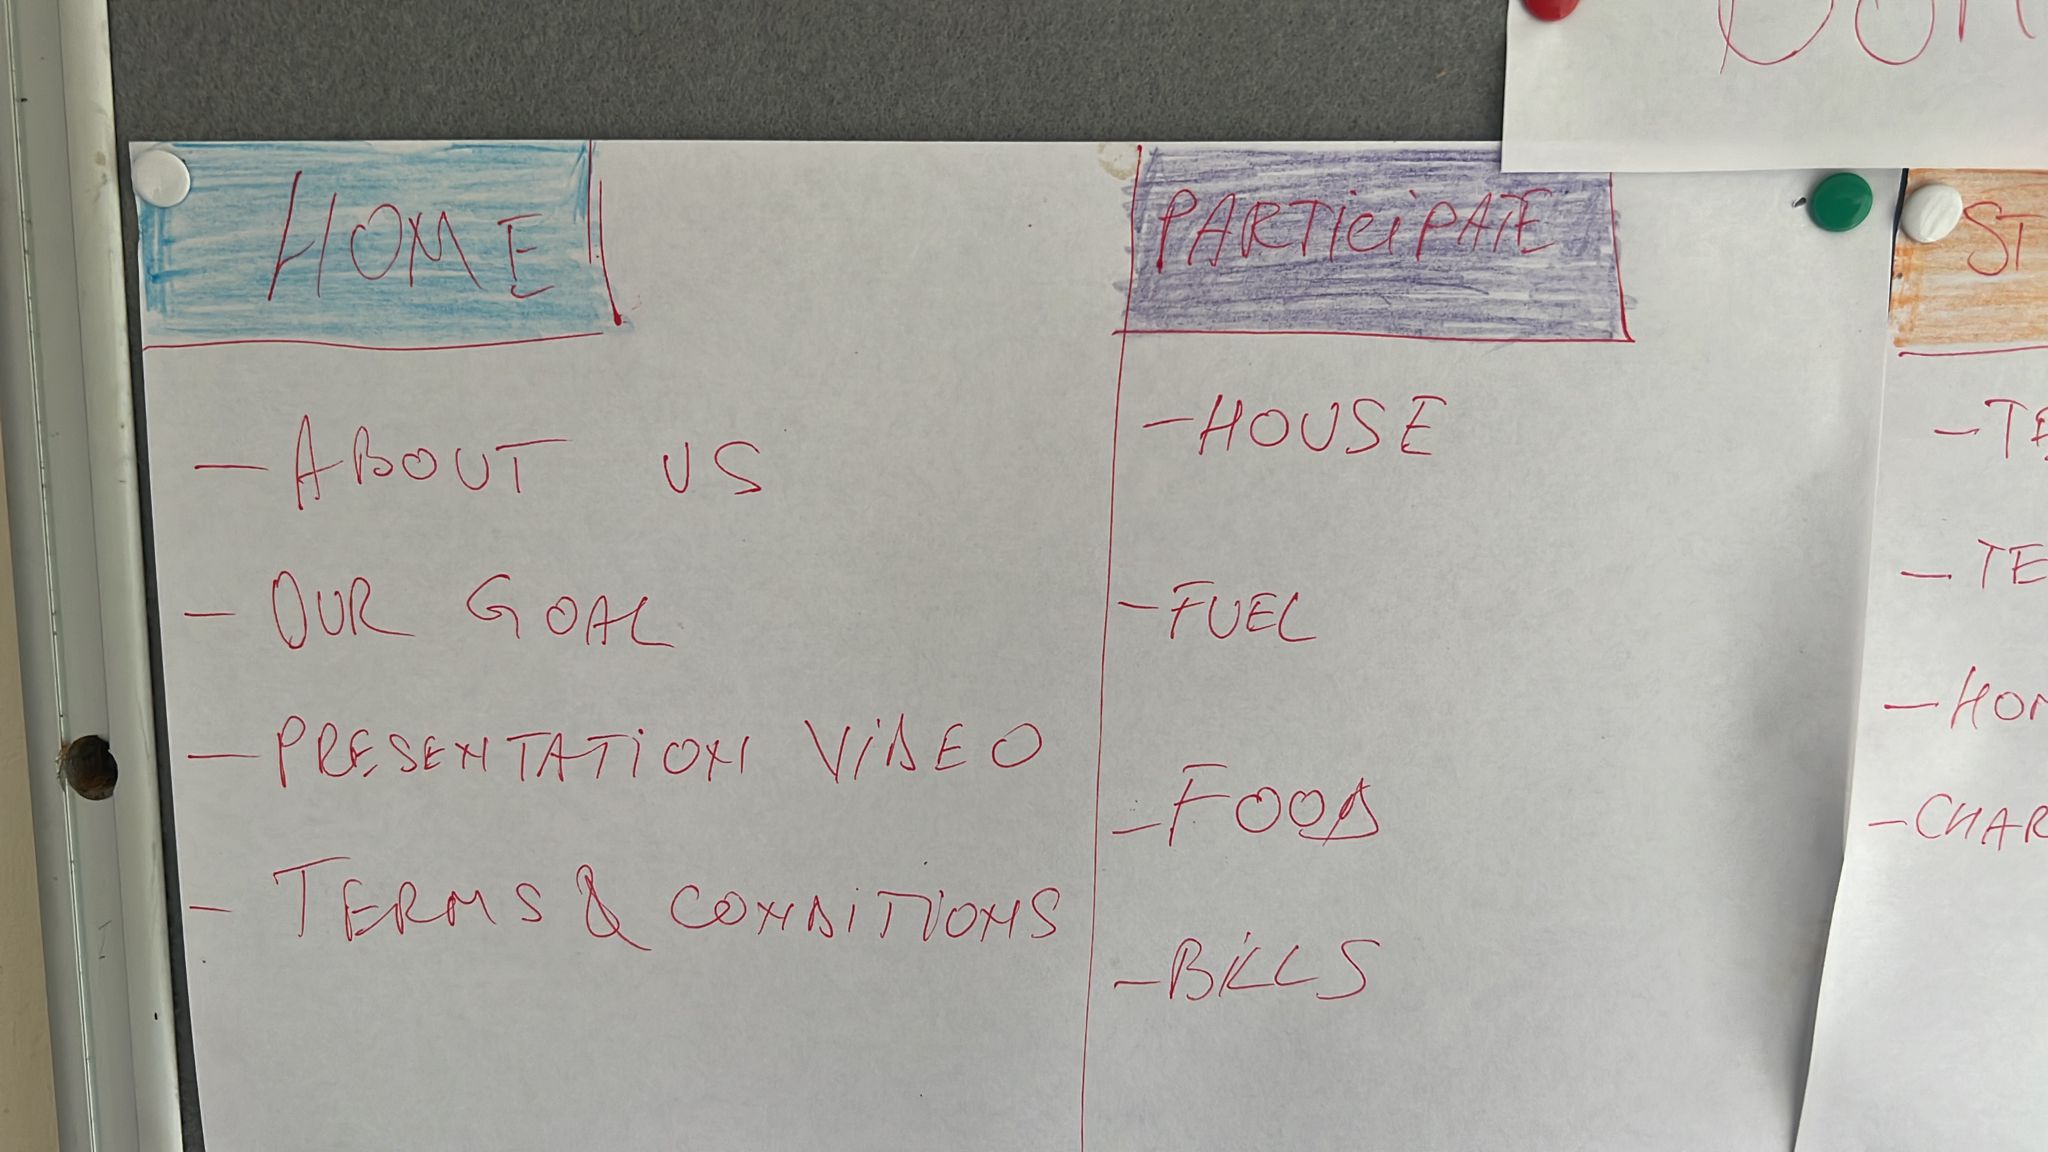 HOME
- ABOUT US
- OUR GOAL
- PRESENTATION VIDEO
- TERMS & CONDITIONS
PARTiCiPATE
- HOUSE
- FUEL
- FOOD
- BILLS